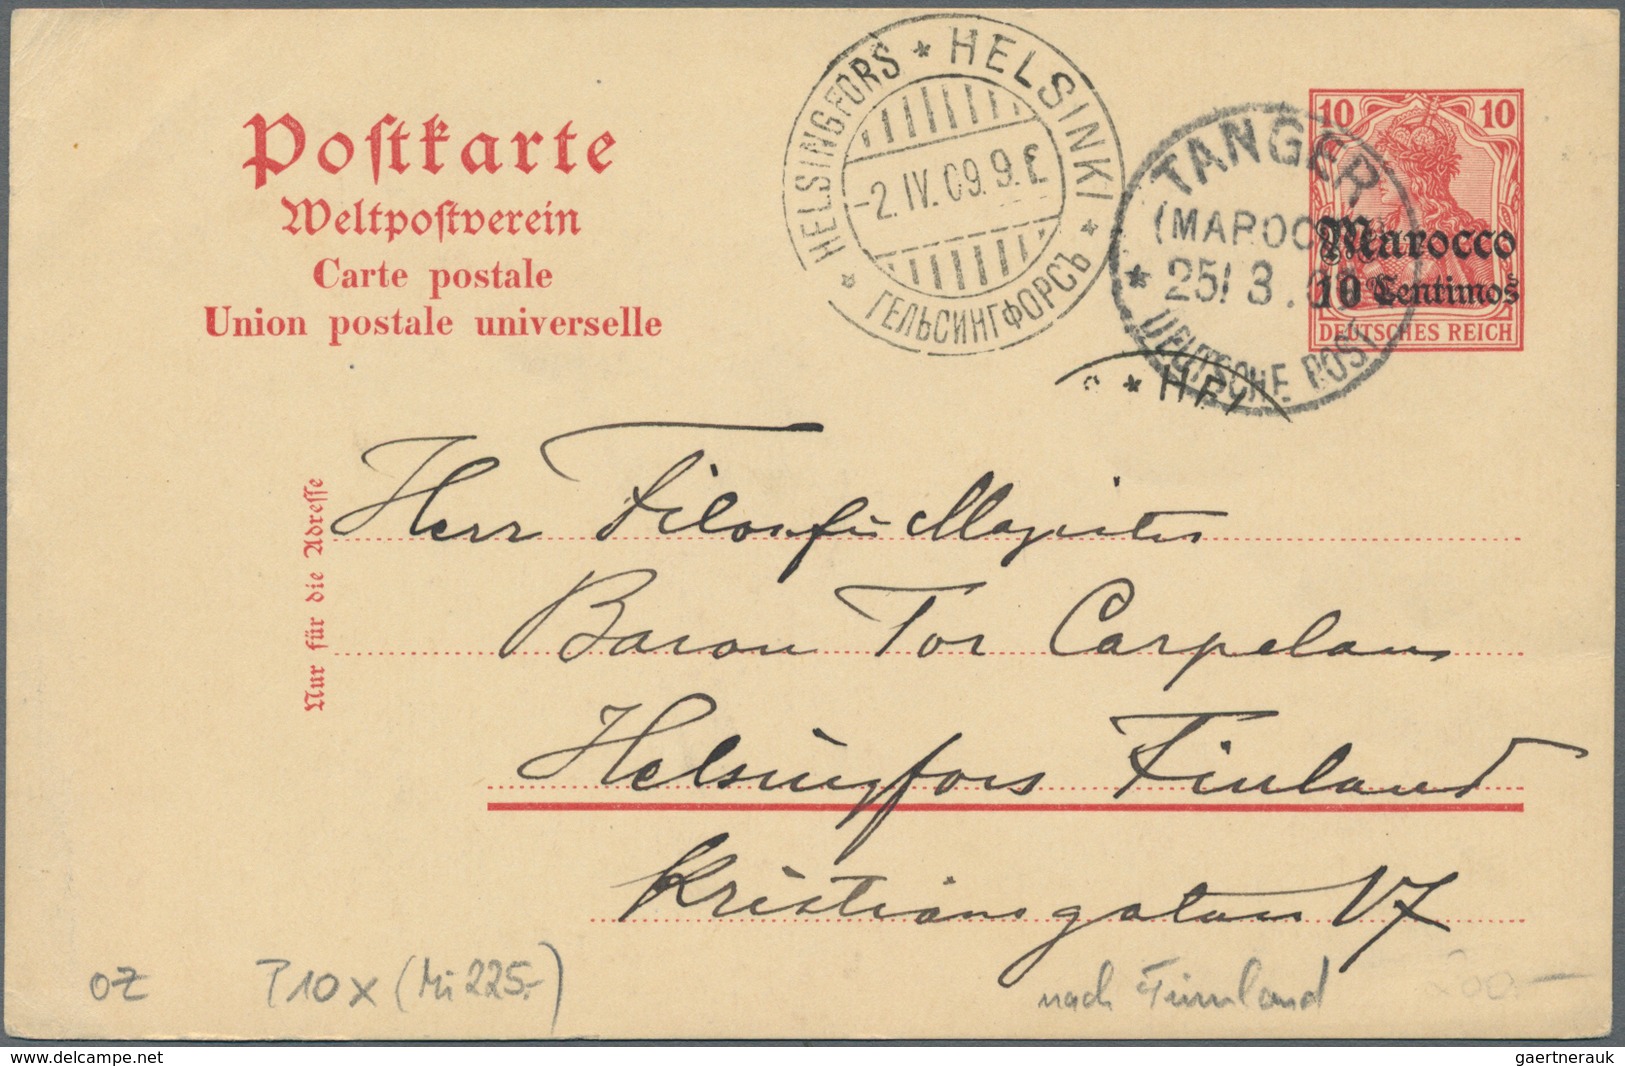 Postkarte
Weltpostverein
Carte postale
Union postale universelle
HELSINGFORS * HELSINKI * ГЕЛЬСИНГФОРСЪ *
-2.IV.09.9.E.
TANGER
(MAROCCO)
25/3.
DEUTSCHE POST
10 10
Marocco
10 Centimos
DEUTSCHES REICH
* HEL
Nur für die Adresse
Herr Filosofie Magister
Baron Tor Carpelan
Helsingfors Finland
Kristiansgatan 17
OZ
P10x (Mi 225.-)
nach Finnland
200.-
delcampe.net
gaertnerauk